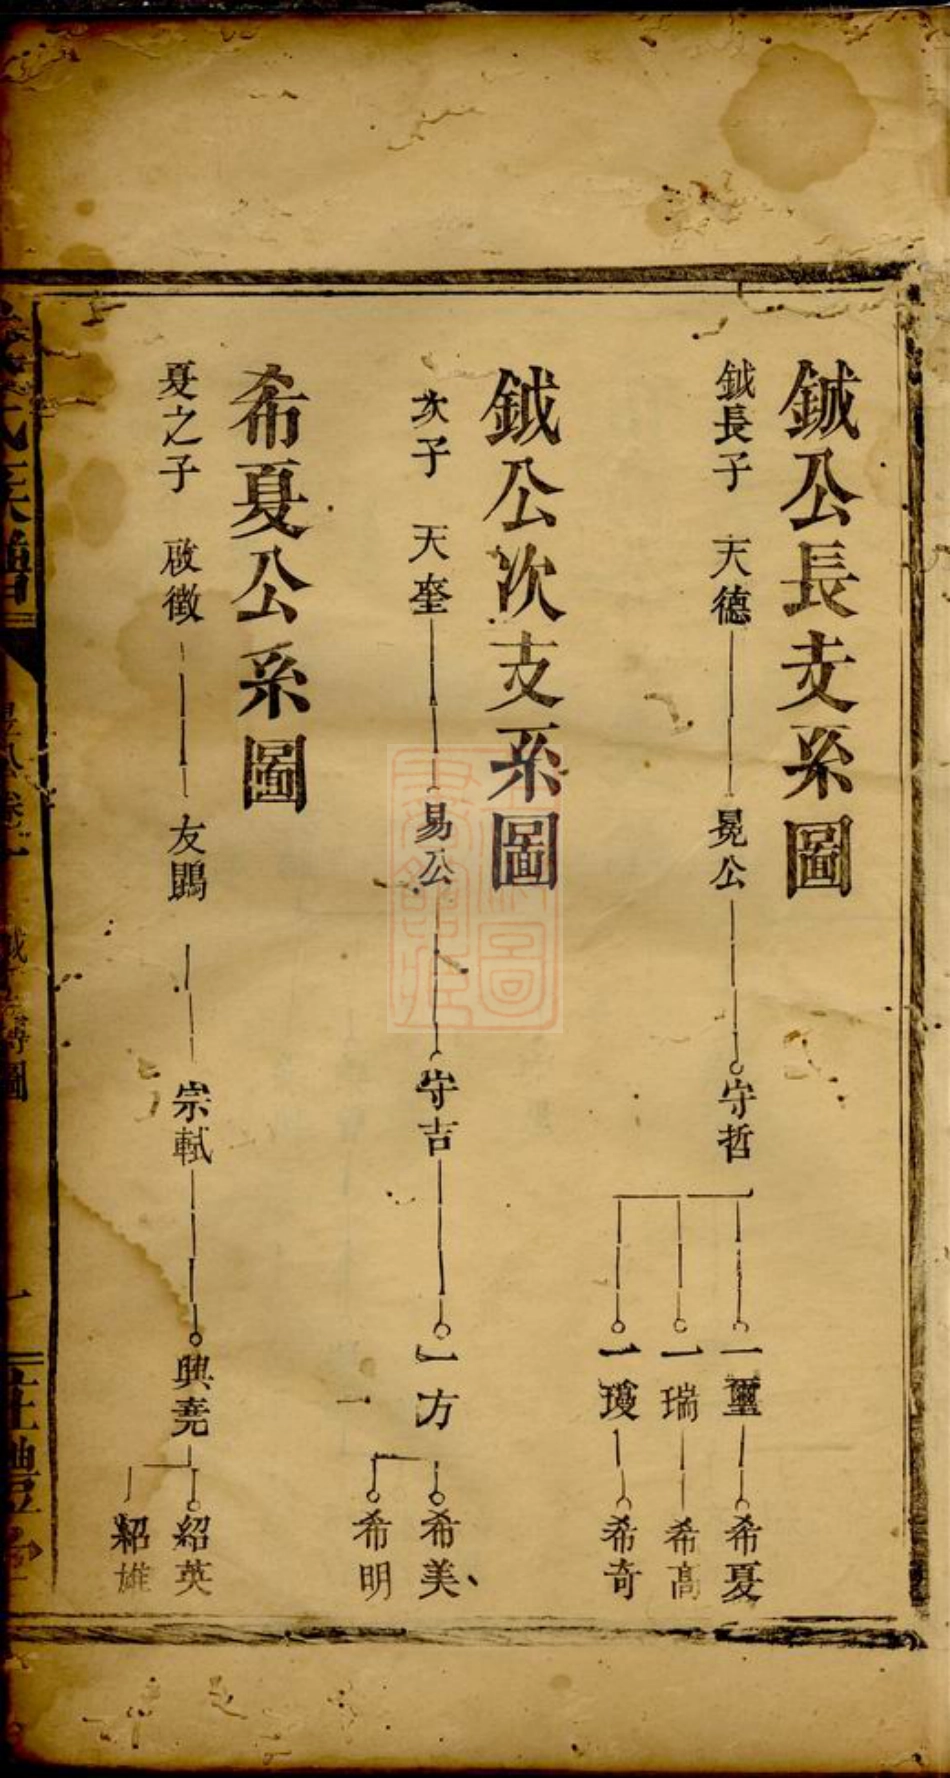 鉞公長支系圖
鉞長子 天德 冕公 守哲
一璽 希夏
一瑞 希高
一瓊 希奇
鉞公次支系圖
次子 天奎 易公 守吉 一方
希美
希明
希夏公系圖
夏之子 啟徵 友鵾 宗軾 興堯
紹英
紹雄
氏族譜